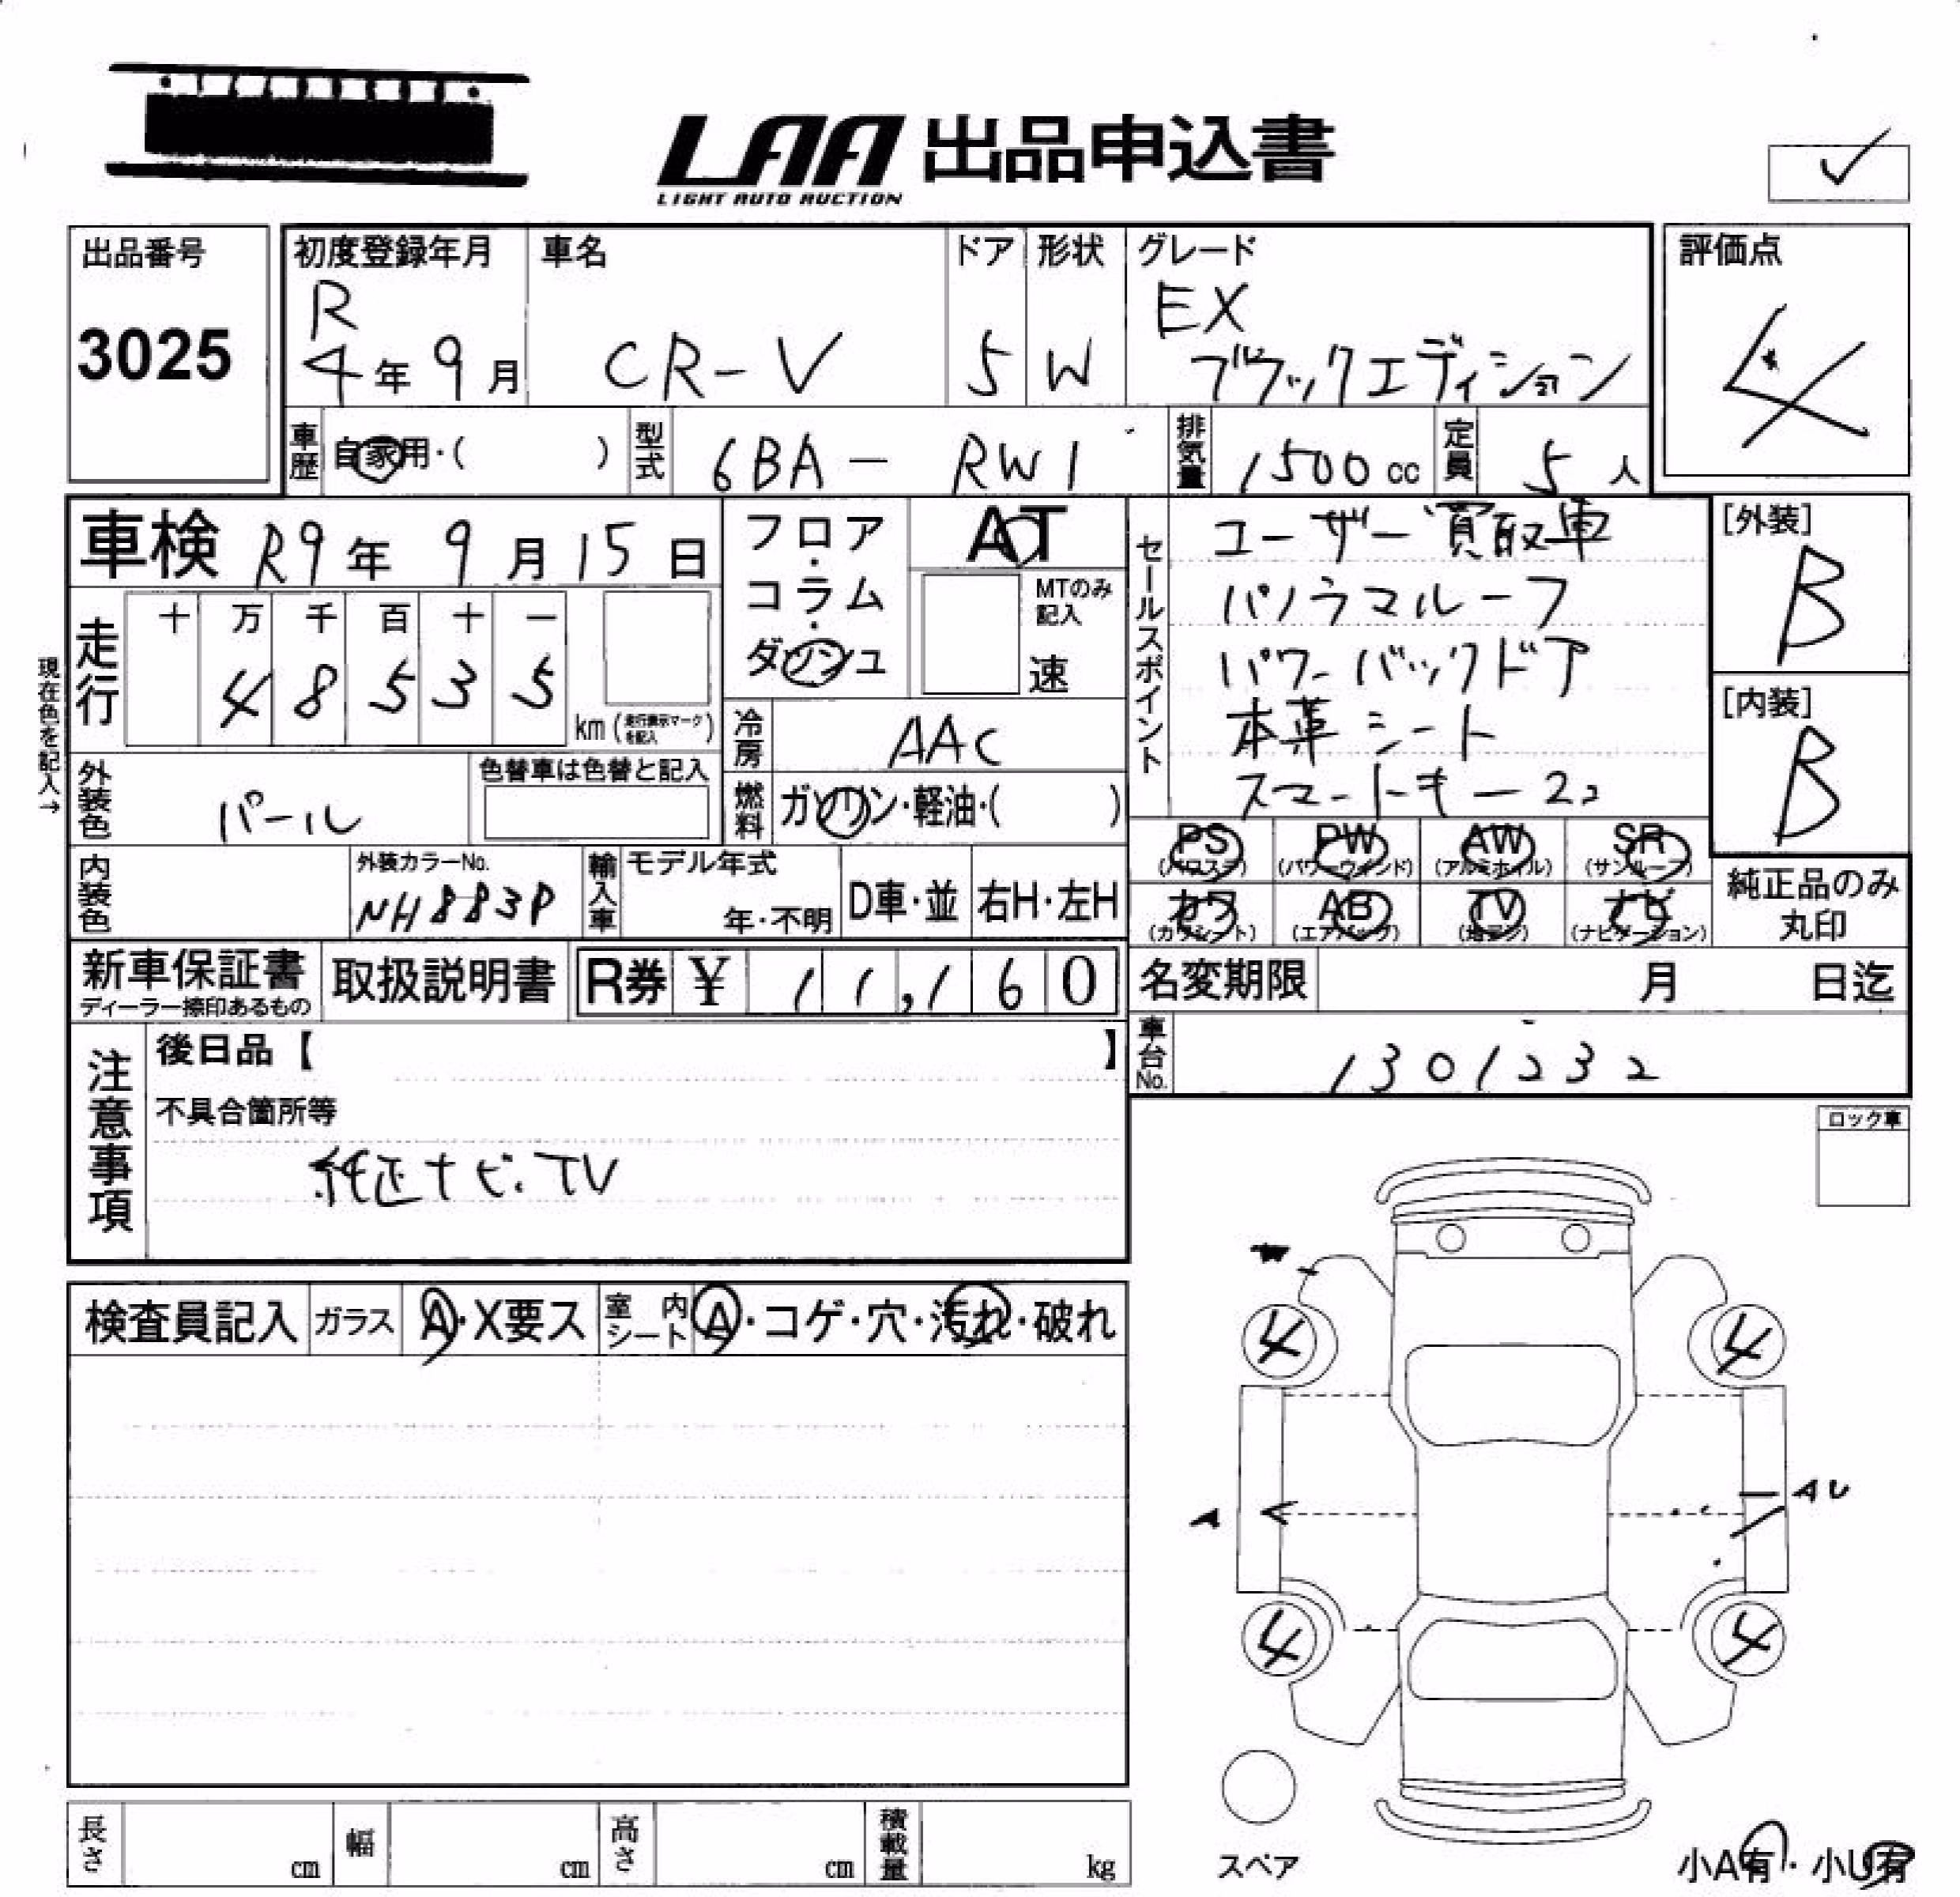 LAA 出品申込書
LIGHT AUTO AUCTION
✓
出品番号
3025
初度登録年月
R
4年9月
車名
CR-V
ドア
5
形状
W
グレード
EX
ブラックエディション
評価点
4
車歴 自家用・( )
型式 6BA - RW1
排気量 1500cc
定員 5人
車検 R9年9月15日
フロア・コラム・ダッシュ
AT
MTのみ記入
速
走行
十 万 千 百 十 一
4 8 5 3 5
km (走行表示マークを記入)
現在色を記入→
冷房 AAC
外装色 パール
色替車は色替と記入
燃料 ガソリン・軽油・( )
内装色
外装カラーNo.
NH883P
輸入車
モデル年式
年・不明
D車・並
右H・左H
セールスポイント
ユーザー買取車
パノラマルーフ
パワーバックドア
本革シート
スマートキー2コ
[外装]
B
[内装]
B
PS (パワステ)
PW (パワーウインド)
AW (アルミホイル)
SR (サンルーフ)
カワ (カワシート)
AB (エアバック)
TV (地デジ)
ナビ (ナビゲーション)
純正品のみ
丸印
新車保証書
ディーラー捺印あるもの
取扱説明書
R券 ¥11,160
名変期限 月 日迄
車台No. 1301232
注意事項
後日品【 】
不具合箇所等
純正ナビ.TV
ロック車
検査員記入
ガラス A・X要ス
室内シート A・コゲ・穴・汚れ・破れ
4 4
A
AU
4 4
スペア
小A有・小U有
長さ cm
幅 cm
高さ cm
積載量 kg